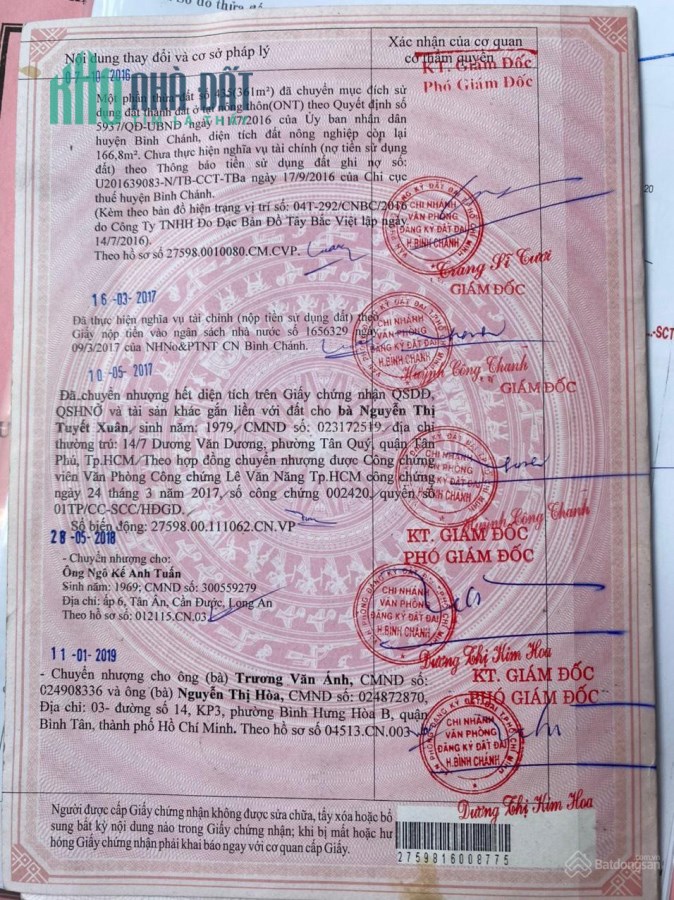 Nội dung thay đổi và cơ sở pháp lý
Xác nhận của cơ quan
có thẩm quyền
07-10-2016
KT. Giám Đốc
Phó Giám Đốc
KHO NHÀ ĐẤT
Một phần thửa đất số 435(361m²) đã chuyển mục đích sử
dụng đất thành đất ở tại nông thôn(ONT) theo Quyết định số
5937/QĐ-UBND ngày 11/7/2016 của Ủy ban nhân dân
huyện Bình Chánh, diện tích đất nông nghiệp còn lại
166,8m². Chưa thực hiện nghĩa vụ tài chính (nợ tiền sử dụng
đất) theo Thông báo tiền sử dụng đất ghi nợ số:
U201639083-N/TB-CCT-TBa ngày 17/9/2016 của Chi cục
thuế huyện Bình Chánh.
(Kèm theo bản đồ hiện trạng vị trí số: 04T-292/CNBC/2016
do Công Ty TNHH Đo Đạc Bản Đồ Tây Bắc Việt lập ngày
14/7/2016).
Theo hồ sơ số 27598.0010080.CM.CVP.
CHI NHÁNH
VĂN PHÒNG
ĐĂNG KÝ ĐẤT ĐAI
H.BÌNH CHÁNH
Trang Sĩ Tươi
GIÁM ĐỐC
16-03-2017
Đã thực hiện nghĩa vụ tài chính (nộp tiền sử dụng đất) theo
Giấy nộp tiền vào ngân sách nhà nước số 1656329 ngày
09/3/2017 của NHNo&PTNT CN Bình Chánh.
CHI NHÁNH
VĂN PHÒNG
ĐĂNG KÝ ĐẤT ĐAI
H.BÌNH CHÁNH
Huỳnh Công Thanh
GIÁM ĐỐC
10-05-2017
Đã chuyển nhượng hết diện tích trên Giấy chứng nhận QSDĐ,
QSHNỞ và tài sản khác gắn liền với đất cho bà Nguyễn Thị
Tuyết Xuân, sinh năm: 1979, CMND số: 023172519, địa chỉ
thường trú: 14/7 Dương Văn Dương, phường Tân Quý, quận Tân
Phú, Tp.HCM. Theo hợp đồng chuyển nhượng được Công chứng
viên Văn Phòng Công chứng Lê Văn Năng Tp.HCM công chứng
ngày 24 tháng 3 năm 2017, số công chứng 002420, quyển số
01TP/CC-SCC/HĐGD.
Số biến động: 27598.00.111062.CN.VP
CHI NHÁNH
VĂN PHÒNG
ĐĂNG KÝ ĐẤT ĐAI
H.BÌNH CHÁNH
Huỳnh Công Thanh
KT. GIÁM ĐỐC
PHÓ GIÁM ĐỐC
28-05-2018
- Chuyển nhượng cho:
Ông Ngô Kế Anh Tuấn
Sinh năm: 1969, CMND số: 300559279
Địa chỉ: ấp 6, Tân Ân, Cần Đước, Long An
Theo hồ sơ số: 012115.CN.03
CHI NHÁNH
VĂN PHÒNG
ĐĂNG KÝ ĐẤT ĐAI
H.BÌNH CHÁNH
Dương Thị Kim Hoa
KT. GIÁM ĐỐC
PHÓ GIÁM ĐỐC
11-01-2019
- Chuyển nhượng cho ông (bà) Trương Văn Ánh, CMND số:
024908336 và ông (bà) Nguyễn Thị Hòa, CMND số: 024872870,
Địa chỉ: 03- đường số 14, KP3, phường Bình Hưng Hòa B, quận
Bình Tân, thành phố Hồ Chí Minh. Theo hồ sơ số 04513.CN.003
CHI NHÁNH
VĂN PHÒNG
ĐĂNG KÝ ĐẤT ĐAI
H.BÌNH CHÁNH
Dương Thị Kim Hoa
Người được cấp Giấy chứng nhận không được sửa chữa, tẩy xóa hoặc bổ
sung bất kỳ nội dung nào trong Giấy chứng nhận; khi bị mất hoặc hư
hỏng Giấy chứng nhận phải khai báo ngay với cơ quan cấp Giấy.
2759816008775
Batdongsan
.com.vn
20
-SCT